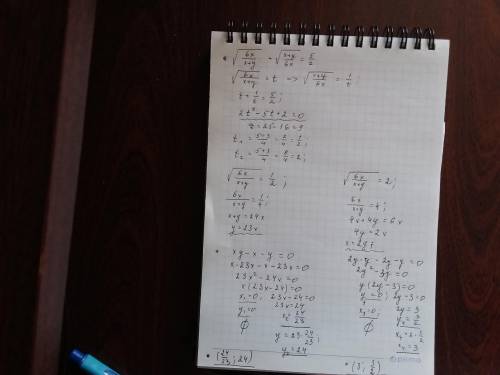 • √(6x/(x+y)) + √((x+y)/6x) = 5/2
√(6x/(x+y)) = t => √((x+y)/6x) = 1/t;
t + 1/t = 5/2;
2t² - 5t + 2 = 0
= 25 - 16 = 9
t₁ = (5-3)/4 = 2/4 = 1/2;
t₂ = (5+3)/4 = 8/4 = 2;
√(6x/(x+y)) = 1/2;
6x/(x+y) = 1/4;
x+y = 24x
y = 23x
√(6x/(x+y)) = 2;
6x/(x+y) = 4;
4x + 4y = 6x
4y = 2x
x = 2y;
• xy - x - y = 0
x·23x - x - 23x = 0
23x² - 24x = 0
x(23x - 24) = 0
x₁ = 0; 23x - 24 = 0
y₁ = 0; 23x = 24
∅ x₂ = 24/23
y = 23·24/23;
y₂ = 24
2y·y - 2y - y = 0
2y² - 3y = 0
y(2y - 3) = 0
y₁ = 0; 2y - 3 = 0
x₁ = 0; 2y = 3
∅ y₂ = 3/2
x₂ = 2·3/2
x₂ = 3
• (24/23; 24)
• (3; 3/2)